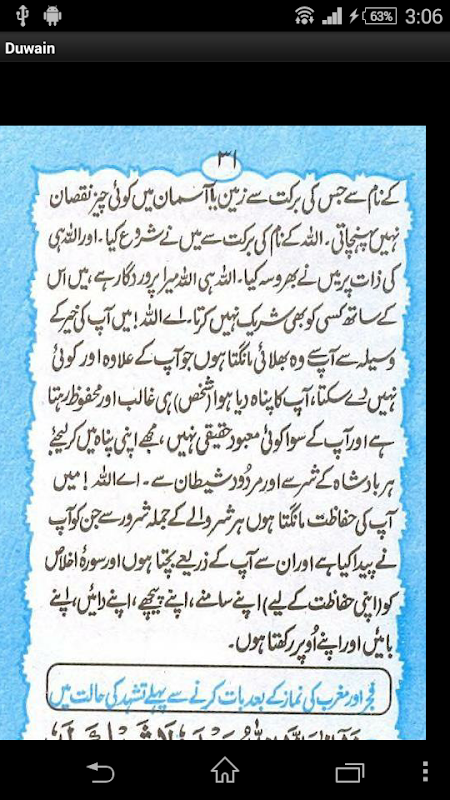 63% 3:06
Duwain
۳۱
کے نام سے جس کی برکت سے زمین یا آسمان میں کوئی چیز نقصان
نہیں پہنچاتی۔ اللہ کے نام کی برکت سے میں نے شروع کیا۔ اور اللہ ہی
کی ذات پر میں نے بھروسہ کیا۔ اللہ ہی اللہ میرا پروردگار ہے، میں اس
کے ساتھ کسی کو بھی شریک نہیں کرتا۔ اے اللہ! میں آپ کی خیر کے
وسیلہ سے آپ سے وہ بھلائی مانگتا ہوں جو آپ کے علاوہ اور کوئی
نہیں دے سکتا، آپ کا پناہ دیا ہوا (شخص) ہی غالب اور محفوظ رہتا
ہے اور آپ کے سوا کوئی معبود حقیقی نہیں، مجھے اپنی پناہ میں کر لیجئے
ہر بادشاہ کے شر سے اور مردود شیطان سے۔ اے اللہ! میں
آپ کی حفاظت مانگتا ہوں ہر شر والے کے جملہ شرور سے جن کو آپ
نے پیدا کیا ہے اور ان سے آپ کے ذریعے بچتا ہوں اور سورۂ اخلاص
کو (اپنی حفاظت کے لیے) اپنے سامنے، اپنے پیچھے، اپنے دائیں، اپنے
بائیں اور اپنے اُوپر رکھتا ہوں۔
فجر اور مغرب کی نماز کے بعد بات کرنے سے پہلے تشہد کی حالت میں